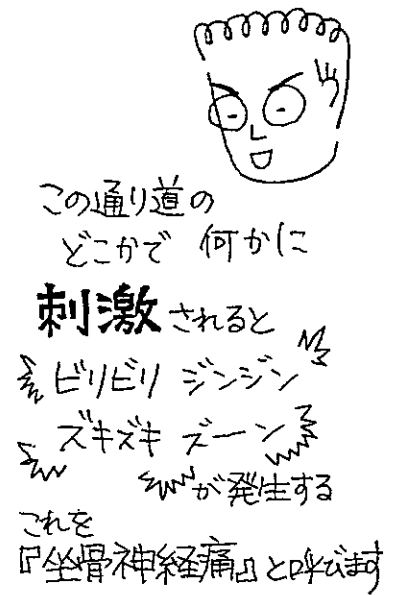 この通り道の
どこかで 何かに
刺激されると
ビリビリ ジンジン
ズキズキ ズーン
が発生する
これを
『坐骨神経痛』と呼びます